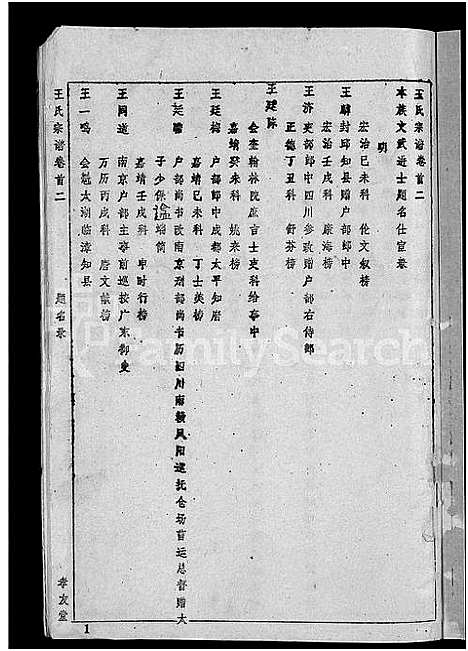 王氏宗谱卷首二
本族文武进士题名仕宦表
明
宏治己未科 伦文叙榜
王麟 封邱知县赠户部郎中
宏治壬戌科 康海榜
王济 吏部郎中四川参政赠户部右侍郎
正德丁丑科 舒芬榜
王廷陈
会奎翰林院庶吉士吏科给事中
嘉靖癸未科 姚涞榜
王廷梅 户部郎中成都太平知府
嘉靖己未科 丁士美榜
王廷瞻 户部尚书改南京刑部尚书历四川南赣凤阳巡抚仓场曹运总督赠太
子少保谥端简
嘉靖壬戌科 申时行榜
王同道 南京户部主事前巡按广东御史
万历丙戌科 唐文献榜
王一鸣 会魁太湖临漳知县
王氏宗谱卷首二 题名录 孝友堂
1
FamilySearch